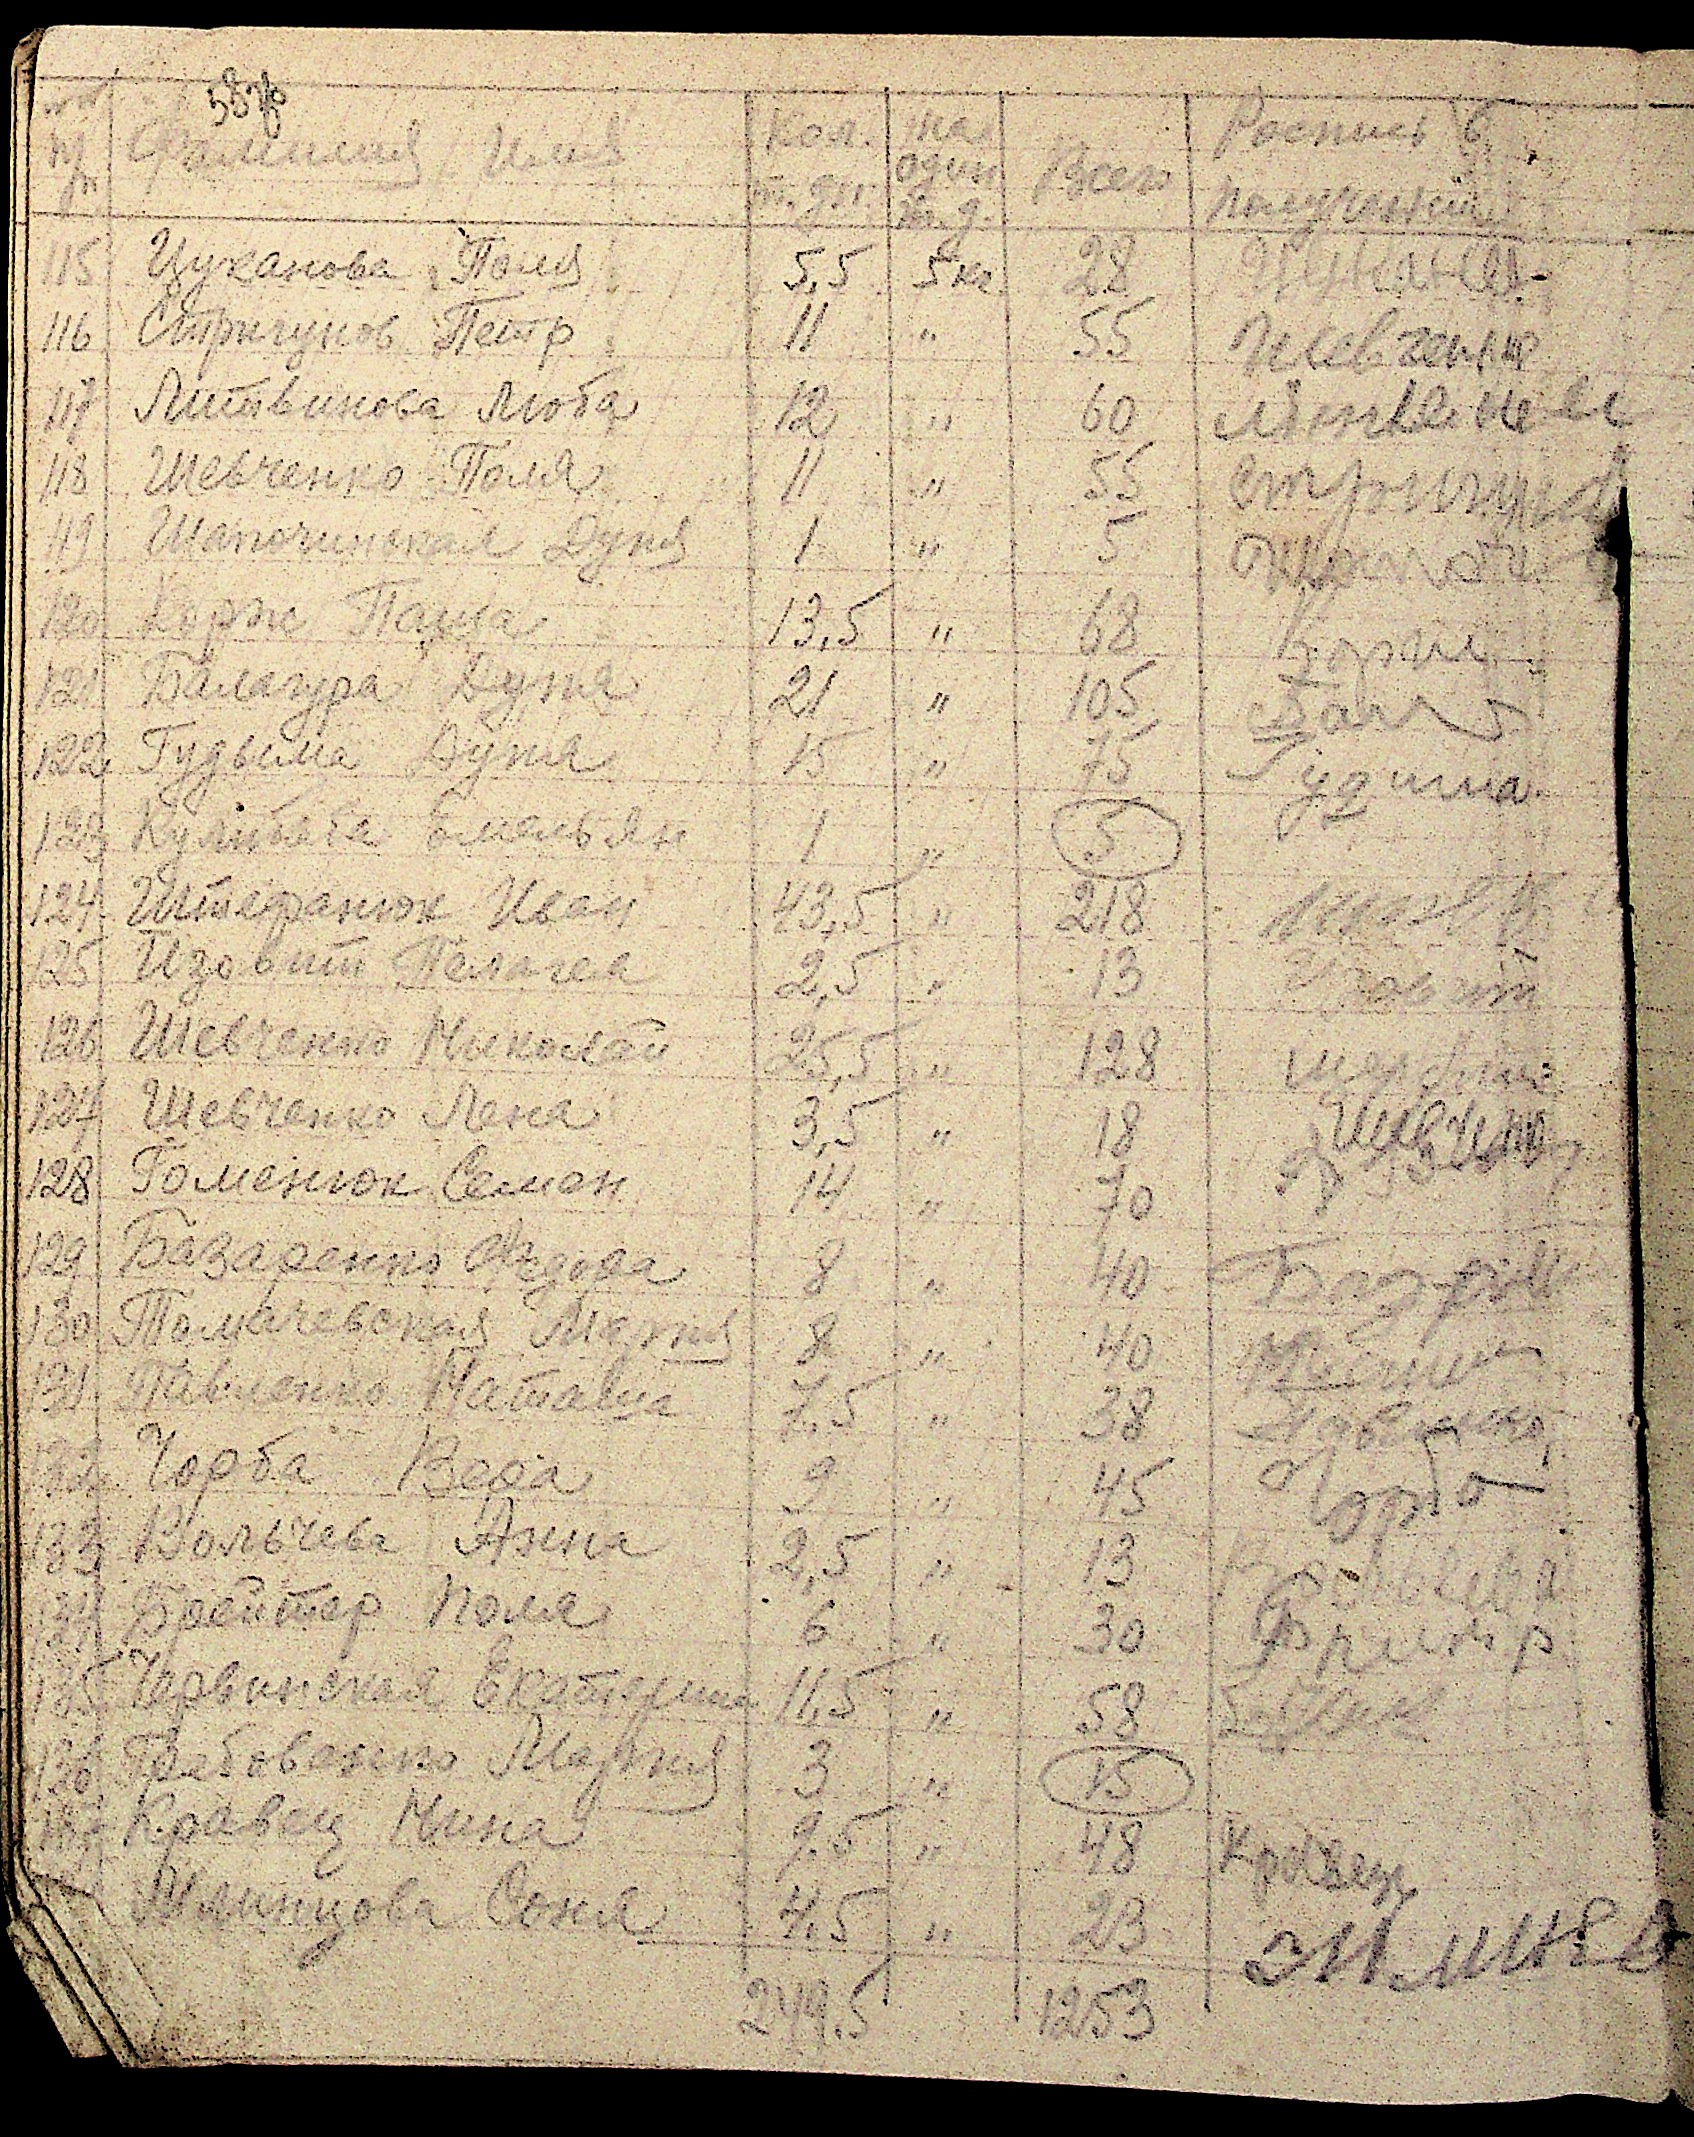 58
№№ п/п Фамилия, Имя Кол. т. дн. на один т. д. Всего Роспись в получении
115 Цуканова Поля 5,5 5 кг 28
116 Стригунов Петр 11 " 55 Шевченко
117 Литвинова Люба 12 " 60
118 Шевченко Поля 11 " 55
119 Шапочинская Дуня 1 " 5
120 Корж Паша 13,5 " 68 Корж
121 Балагура Дуня 21 " 105
122 Гудыма Дуня 15 " 75 Гудима
123 Емельян 1 " 5
124 Штефанюк Иван 43,5 " 218
125 Изовит Пелагея 2,5 " 13 Изовит
126 Шевченко Николай 25,5 " 128
127 Шевченко Лена 3,5 " 18
128 Гоменюк Семен 14 " 70
129 Базаренко Федора 8 " 40
130 Томачевская Мария 8 " 40
131 Павленко Наташа 7,5 " 38 Павленко
132 Чорба Вера 9 " 45 Чорба
133 Вольчева Анна 2,5 " 13 Вольчева
134 Брейтер Поля 6 " 30
135 Червинская Екатерина 11,5 " 58
136 Мария 3 " 15
137 Кравец Нина 9.5 " 48 Кравец
Млинцова Соня 4,5 " 23
249.5 1253